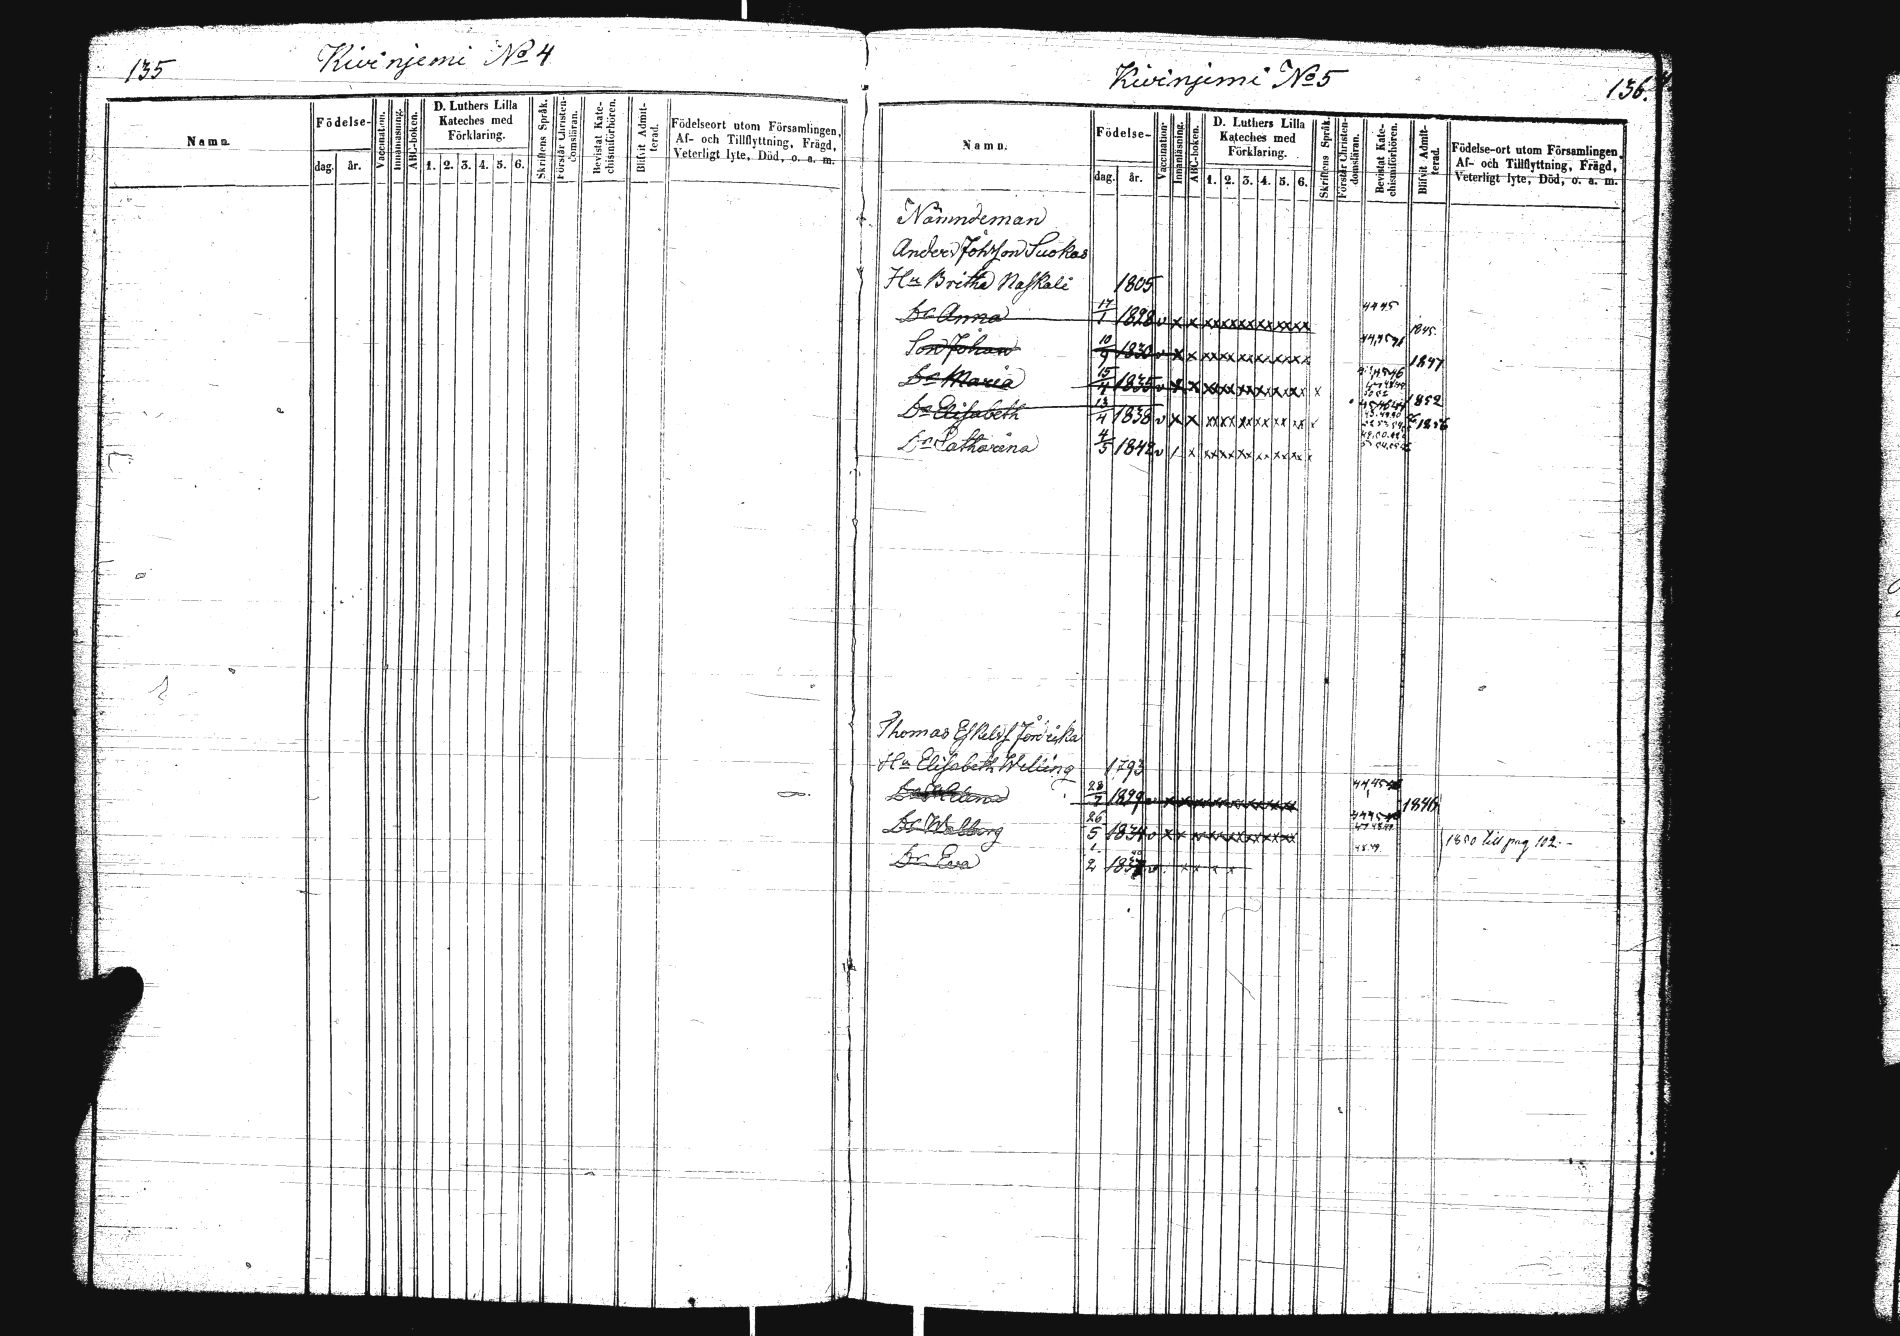 135 Kivinjemi No 4
Namn.
Födelse-
dag. år.
Vaccination.
Innanläsning.
ABC-boken.
D. Luthers Lilla
Kateches med
Förklaring.
1. 2. 3. 4. 5. 6.
Skriftens Språk.
Förstår Christen-
domsläran.
Bevistat Kate-
chismiförhören.
Blifvit Admit-
terad.
Födelseort utom Församlingen,
Af- och Tillflyttning, Frägd,
Veterligt lyte, Död, o. a. m.
Kivinjemi No 5 136.
Namn.
Födelse-
dag. år.
Vaccination
Innanläsning.
ABC-boken.
D. Luthers Lilla
Kateches med
Förklaring.
1. 2. 3. 4. 5. 6.
Skriftens Språk.
Förstår Christen-
domsläran.
Bevistat Kate-
chismiförhören.
Blifvit Admit-
terad.
Födelse-ort utom Församlingen
Af- och Tillflyttning, Frägd,
Veterligt lyte, Död, o. a. m.
Nämndeman
Anders Johsson Suokas
Hu Britha Naskali 1805
Dr Anna 17/1 1828 v x x xxxxxxxxxxxx 4445 1845
Son Johan 10/9 1830 v x x xxxxxxxxxxxx 1847
Dr Maria 15/4 1835 v x x xxxxxxxxxxxx x 1852
Dr Elisabeth 13/4 1838 v x x xxxxxxxxxxxx 1856
Dr Catharina 4/5 1842 v / x xxxxxxxxxxxx
Thomas Eskelsf Jöröikka
Hu Elisabeth Welling 1793
Dr Helena 28/7 1829 1846
Dr Walborg 26/5 1834 v x x xxxxxxxxxxxx
Dr Eva 1/2 1837 v x x x x 48.49. 1850 till pag 102.-